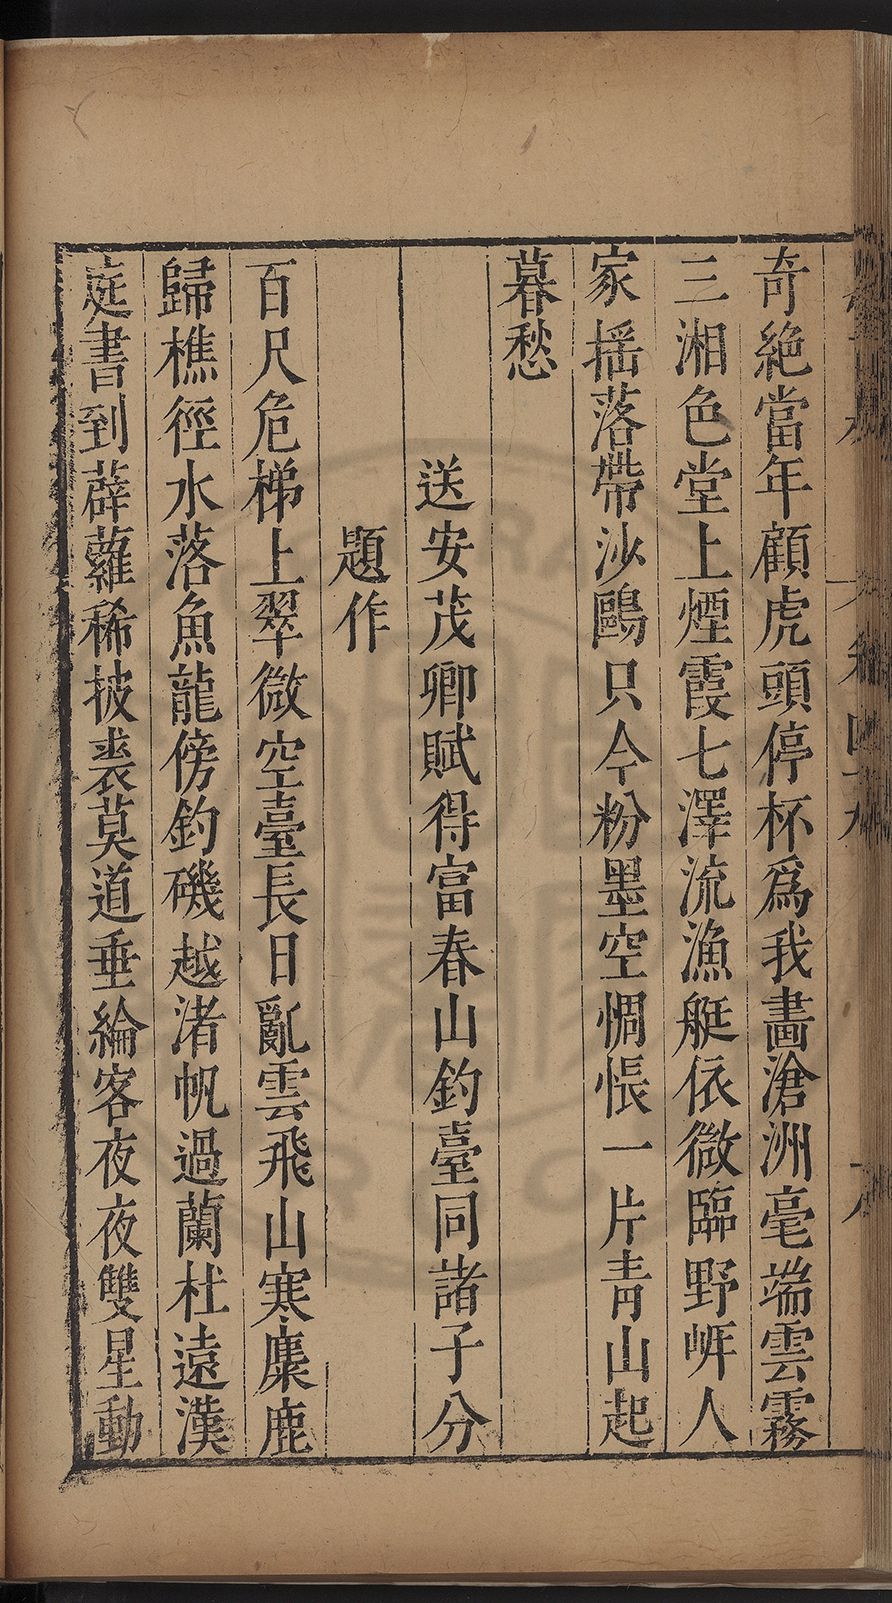 奇絶當年顧虎頭停杯爲我畵滄洲毫端雲霧
三湘色堂上煙霞七澤流漁艇依微臨野㟁人
家揺落帶沙鷗只今粉墨空惆悵一片青山起
暮愁
送安茂卿賦得富春山釣臺同諸子分
題作
百尺危梯上翠微空臺長日亂雲飛山寒麋鹿
歸樵徑水落魚龍傍釣磯越渚帆過蘭杜遠漢
庭書到薜蘿稀披裘莫道垂綸客夜夜雙星動